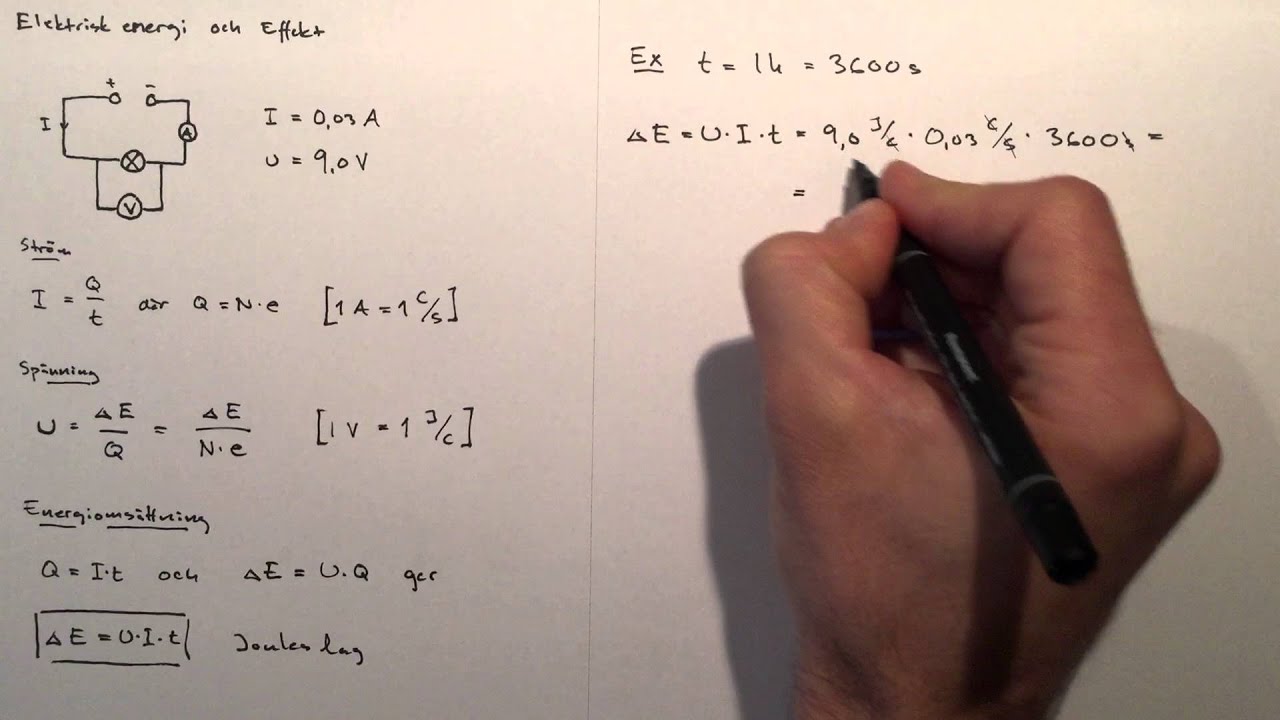 Elektrisk energi och Effekt
+ -
I
A
V
I = 0,03 A
U = 9,0 V
Ström
I = Q/t där Q = N·e [1 A = 1 C/s]
Spänning
U = ΔE/Q = ΔE/N·e [1 V = 1 J/C]
Energiomsättning
Q = I·t och ΔE = U·Q ger
ΔE = U·I·t Joules lag
Ex t = 1h = 3600 s
ΔE = U·I·t = 9,0 J/C · 0,03 C/s · 3600 s =
=